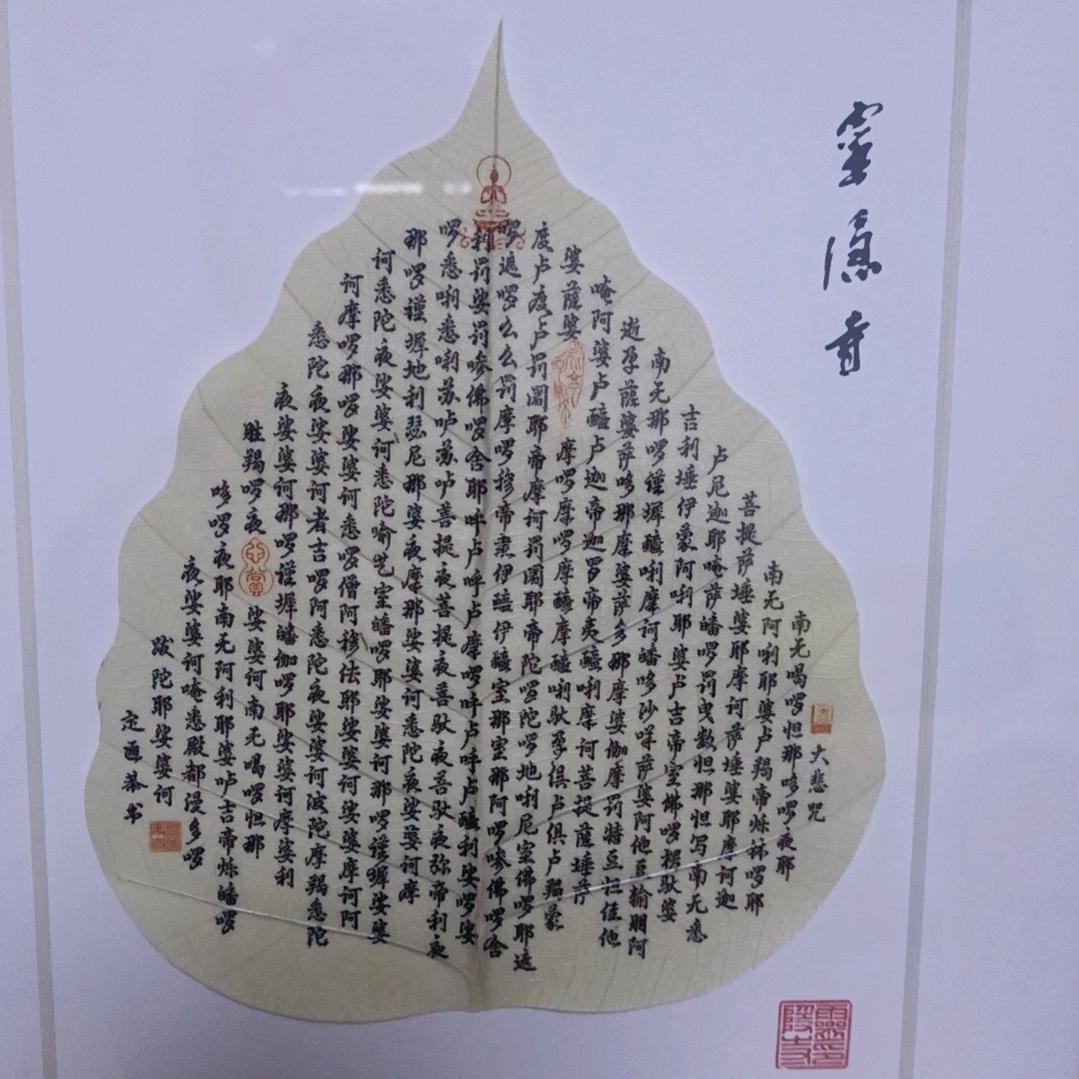 靈隱寺
大悲咒
南无喝啰怛那哆啰夜耶
南无阿唎耶婆卢羯帝烁钵啰耶
菩提萨埵婆耶摩诃萨埵婆耶摩诃迦
卢尼迦耶唵萨皤啰罚曳数怛那怛写南无悉
吉利埵伊蒙阿唎耶婆卢吉帝室佛啰楞驮婆
南无那啰谨墀醯唎摩诃皤哆沙咩萨婆阿他豆输朋阿
逝孕薩婆萨哆那摩婆萨多那摩婆伽摩罚特豆怛侄他
唵阿婆卢醯卢迦帝迦罗帝夷醯唎摩诃菩提薩埵萨
婆薩婆摩啰摩啰摩醯摩醯唎驮孕俱卢俱卢羯蒙
度卢度卢罚闍耶帝摩诃罚闍耶帝陀啰陀啰地唎尼室佛啰耶遮
啰遮啰么么罚摩啰穆帝隶伊醯伊醯室那室那阿啰嘇佛啰舍
利罚娑罚嘇佛啰舍耶呼卢呼卢摩啰呼卢呼卢醯利娑啰娑
啰悉唎悉唎苏嚧苏嚧菩提夜菩提夜菩驮夜菩驮夜弥帝利夜
那啰谨墀地利瑟尼那婆夜摩那娑婆诃悉陀夜娑婆诃摩
诃悉陀夜娑婆诃悉陀喻艺室皤啰耶娑婆诃那啰谨墀娑婆
诃摩啰那啰娑婆诃悉啰僧阿穆佉耶娑婆诃娑婆摩诃阿
悉陀夜娑婆诃者吉啰阿悉陀夜娑婆诃波陀摩羯悉陀
夜娑婆诃那啰谨墀皤伽啰耶娑婆诃摩婆利
胜羯啰夜娑婆诃南无喝啰怛那
哆啰夜耶南无阿利耶婆嚧吉帝烁皤啰
夜娑婆诃唵悉殿都漫多啰
跋陀耶娑婆诃
定通恭书
靈隱寺